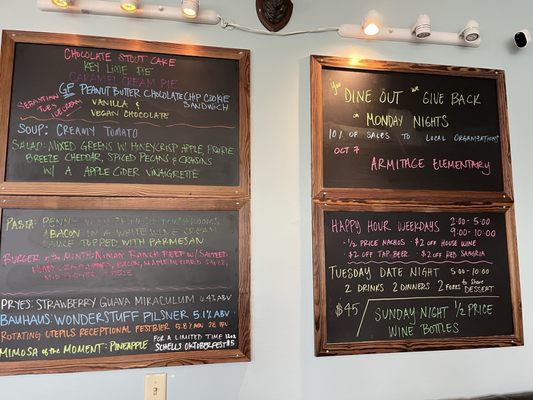 Chocolate Stout Cake
Key Lime Pie
Caramel Cream Pie
GF Peanut Butter Chocolate Chip Cookie
Sandwich
Sebastian
Joe's
Ice Cream
Vanilla &
Vegan Chocolate
Soup: Creamy Tomato
Salad: Mixed Greens w/ Honeycrisp Apple, Prairie
Breeze Cheddar, Spiced Pecans & Craisins
w/ a Apple Cider Vinaigrette
Pasta: Penne
& Bacon in a White Wine Cream
Sauce Topped with Parmesan
Burger of the Month: Niman Ranch Beef w/ Sauteed
Pryes: Strawberry Guava Miraculum
ABV
Bauhaus: Wonderstuff Pilsner 5.1% ABV
Rotating Utepils Receptional Festbier 5.8% ABV
Mimosa of the Moment: Pineapple
For a limited time
Schells Oktoberfest
You
Dine Out We Give Back
on Monday Nights
10% of Sales to Local Organizations
Oct 7
Armitage Elementary
Happy Hour Weekdays 2:00-5:00
9:00-10:00
· 1/2 Price Nachos · $2 off House Wine
· $2 off Tap Beer · $2 off Red Sangria
Tuesday Date Night 5:00-10:00
2 Drinks 2 Dinners 2 Forks to Share
Dessert
$45
Sunday Night 1/2 Price
Wine Bottles